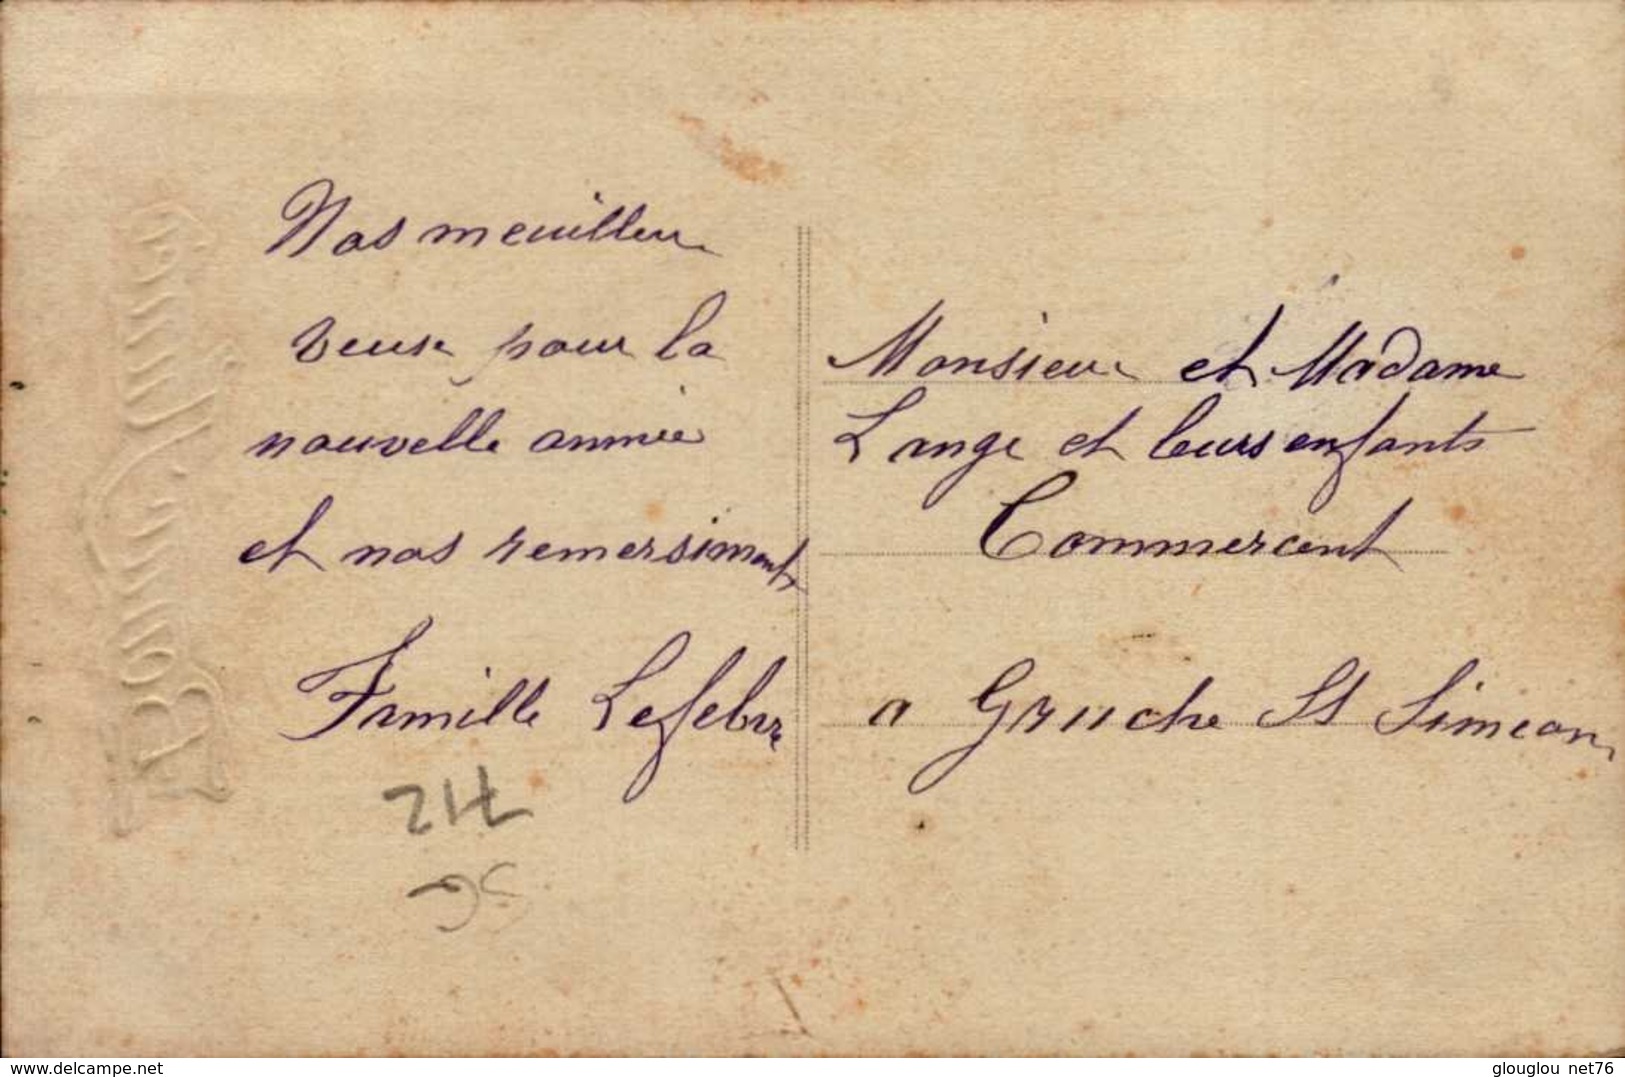 Nos meuilleur
veux pour la
nouvelle année
et nos remersiment
Famille Lefebvre
Monsieur et Madame
Lange et leurs enfants
Commercent
a Gruche St Simeon
Bonne Année
delcampe.net
glouglou net76